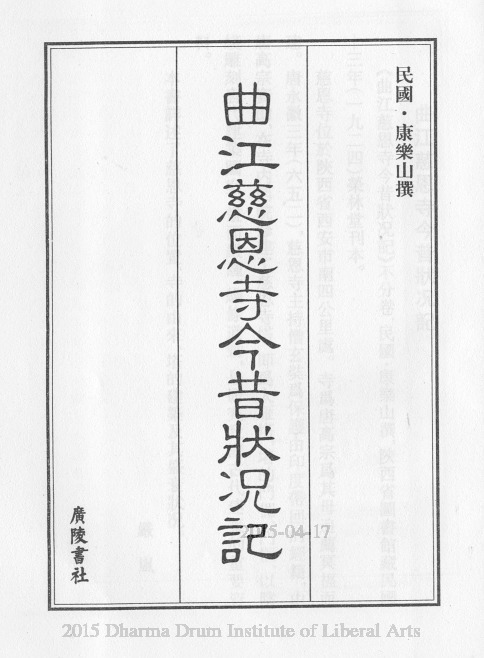 民國·康樂山撰
曲江慈恩寺今昔狀況記
廣陵書社
2015-04-17
2015 Dharma Drum Institute of Liberal Arts